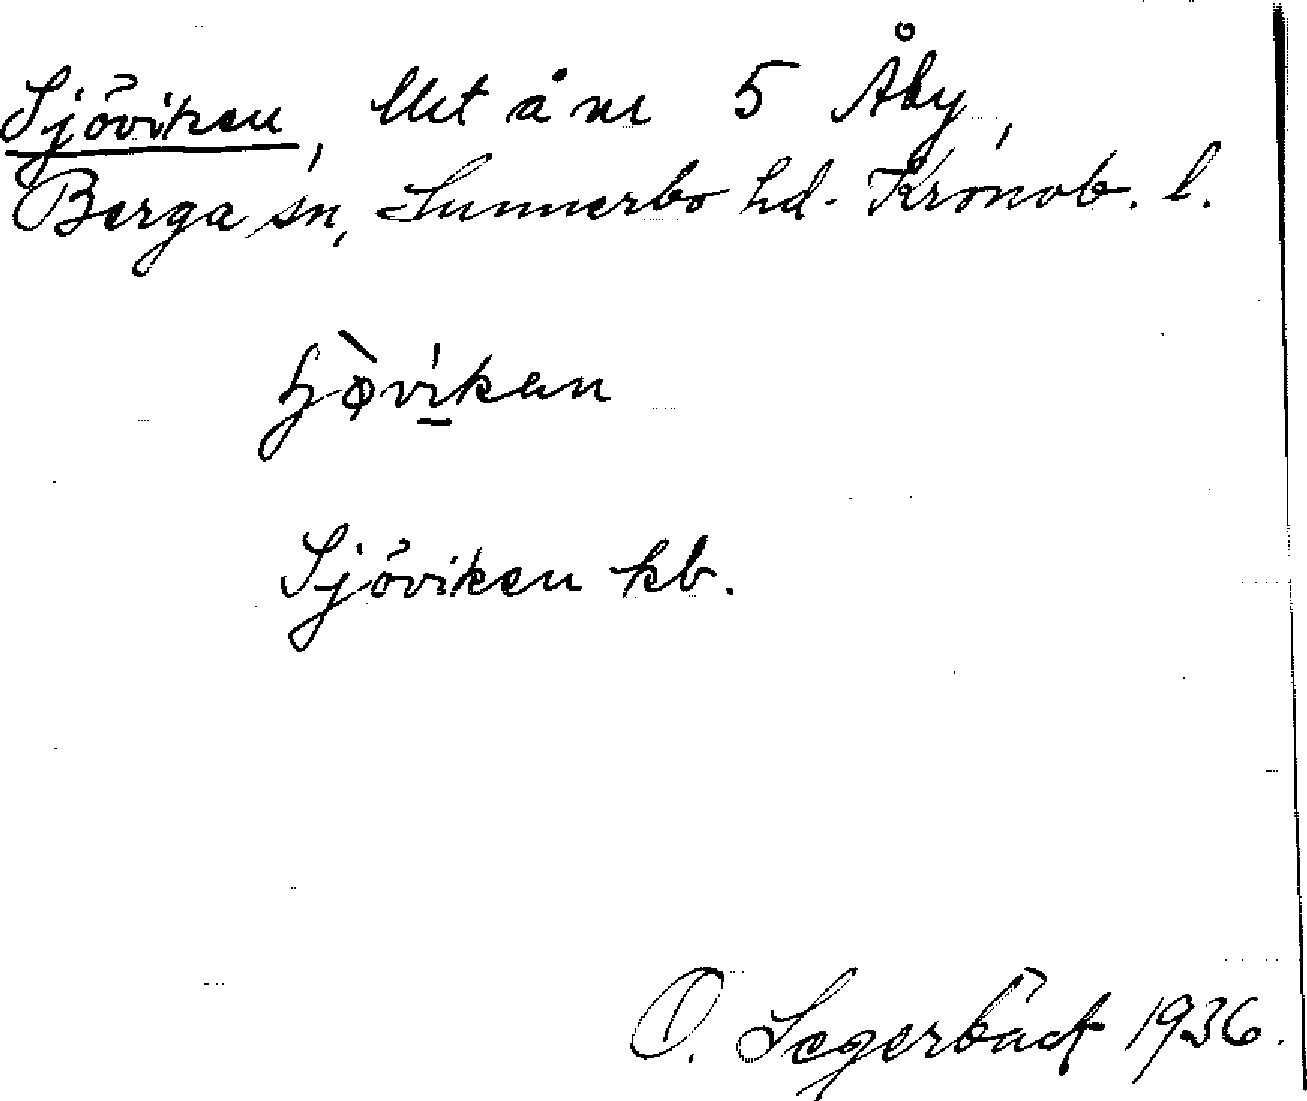 Sjöviken, lht å nr 5 Åby,
Berga sn, Sunnerbo hd. Kronob. l.
ɧø̀vi̱kan
Sjöviken kb.
O. Segerbäck 1936.